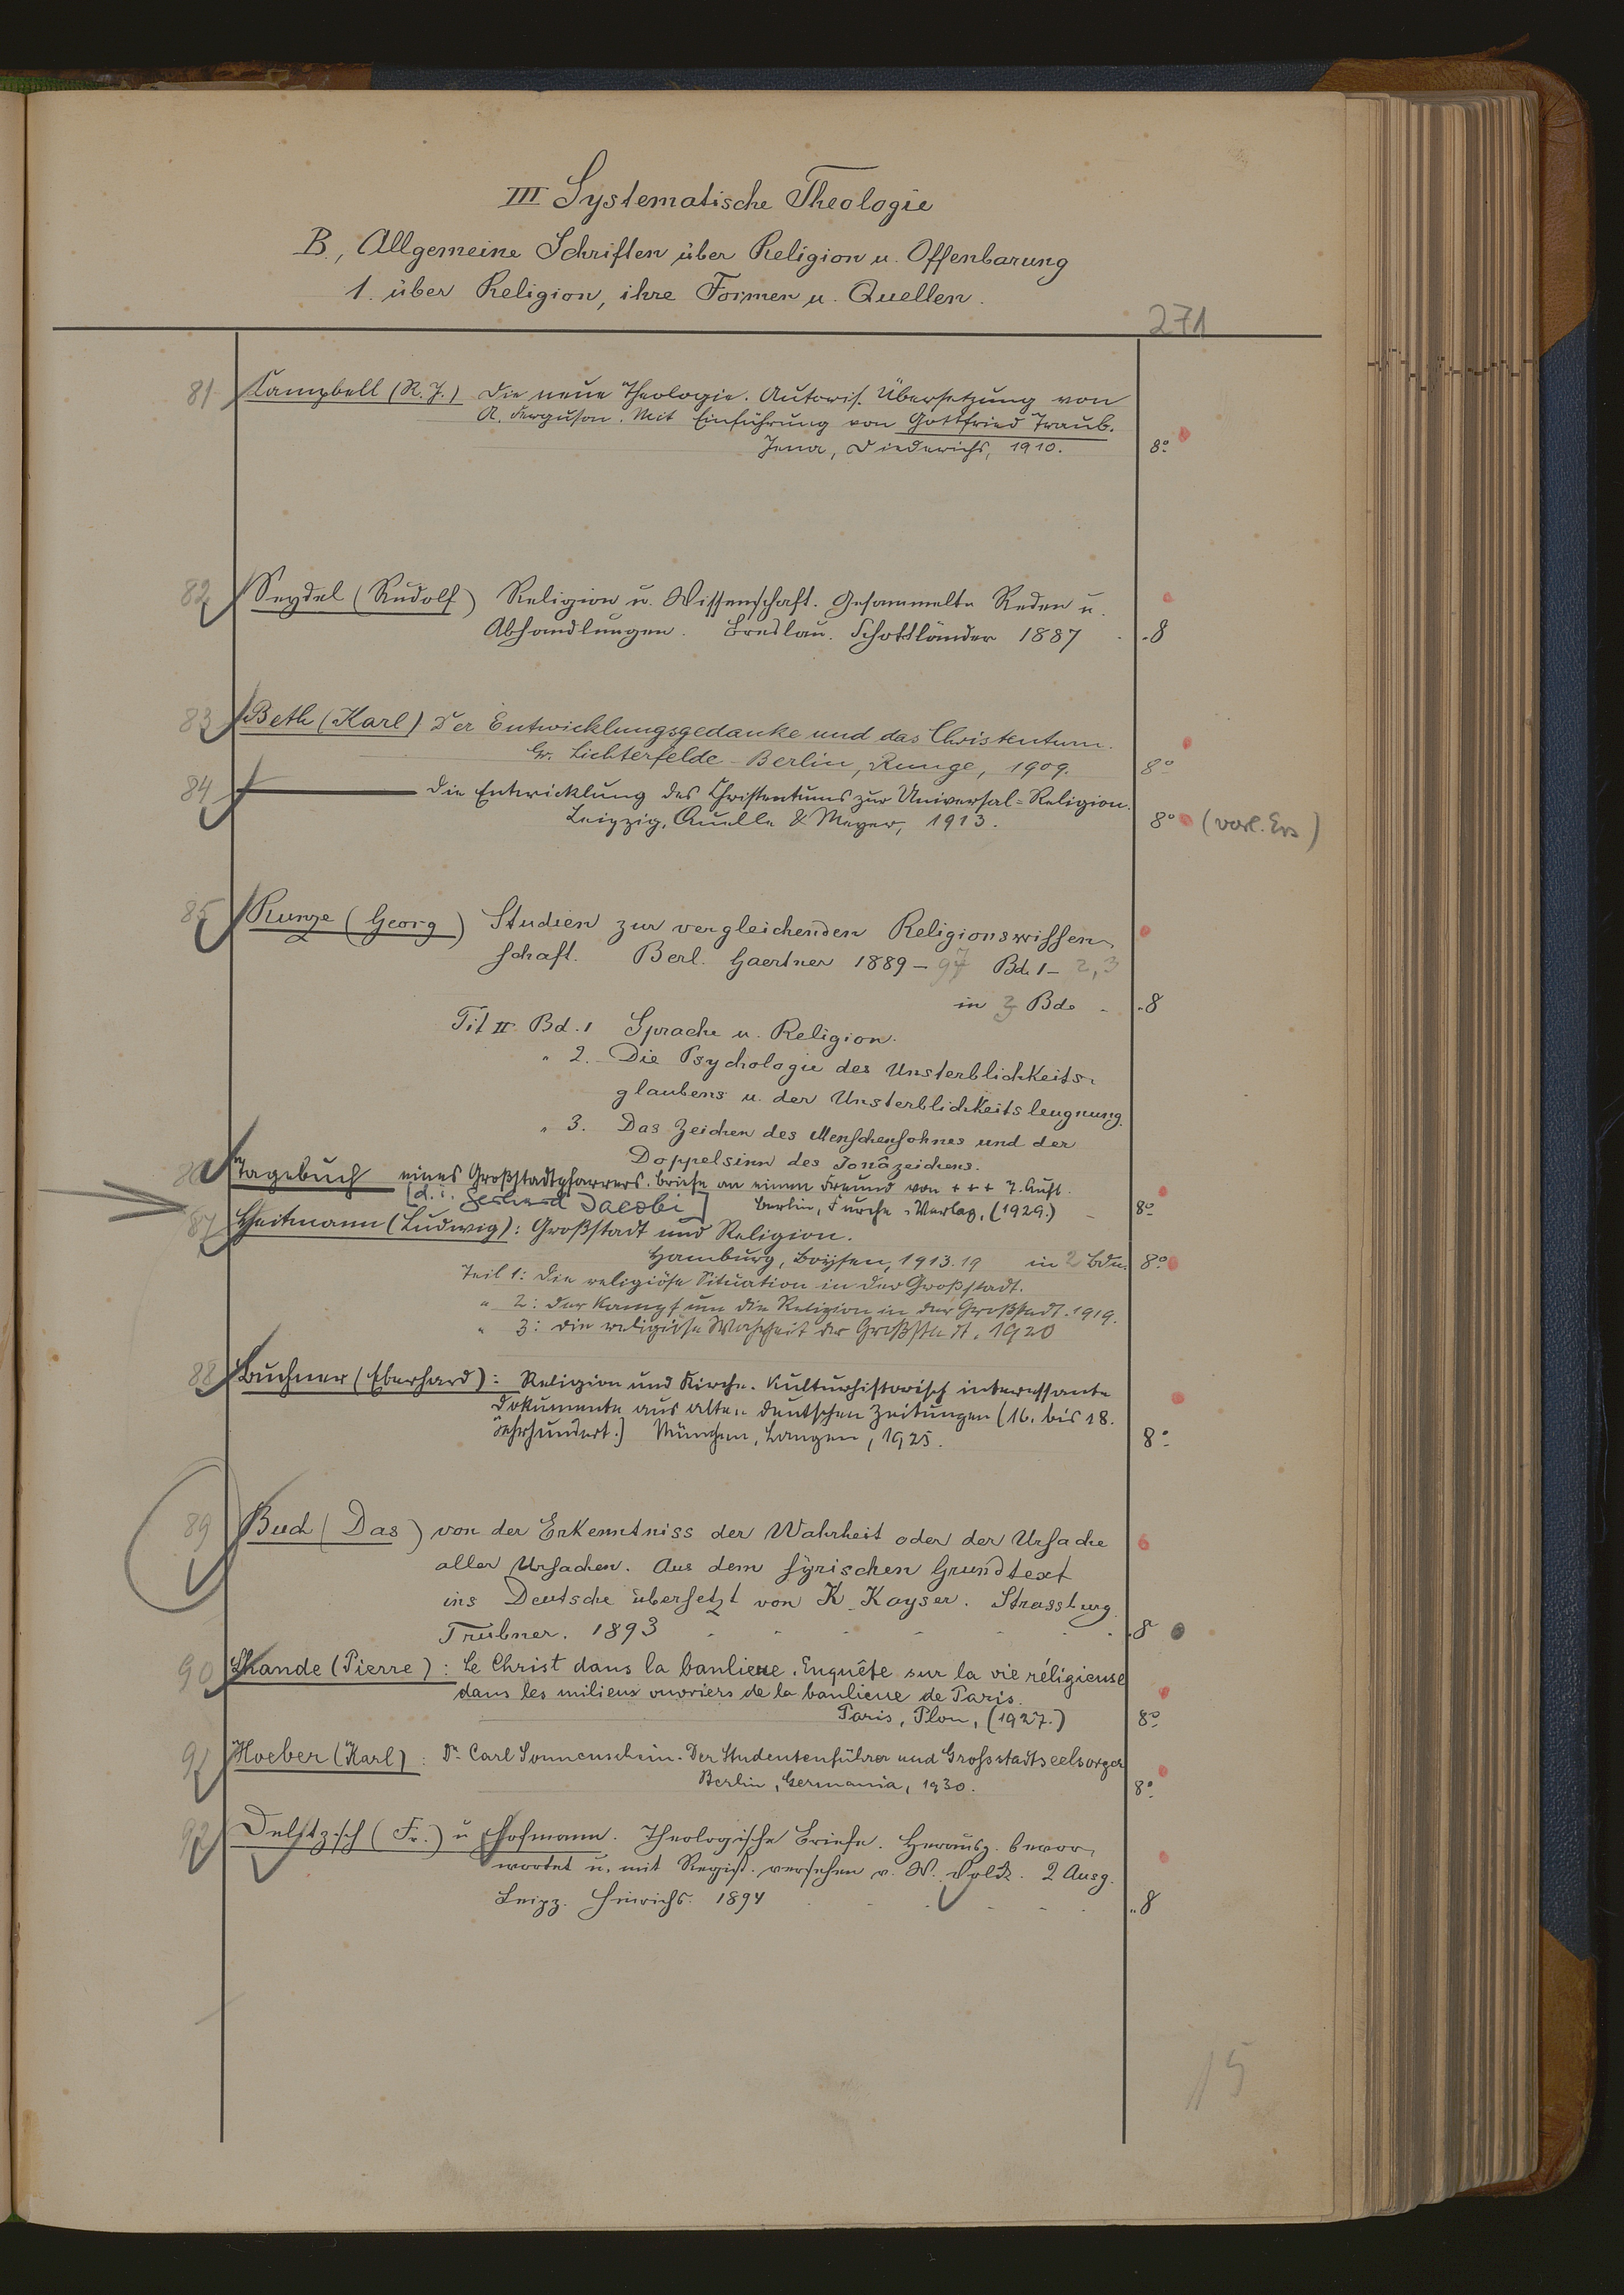 III Systematische Theologie
B., Allgemeine Schriften über Religion u. Offenbarung
1. über Religion, ihre Formen u. Quellen.
271
81 Campbell (R. J.) Die neue Theologie. Autoris. Übersetzung von
A. Ferguson. Mit Einführung von Gottfried Traub.
Jena, Diederichs, 1910. 8°
82 Seydel (Rudolf) Religion u. Wissenschaft. Gesammelte Reden u.
Abhandlungen. Breslau. Schottländer 1887 . . 8
83 Beth (Karl) Der Entwicklungsgedanke und das Christentum.
Gr. Lichterfelde-Berlin, Runge, 1909. 8°
84 ——— Die Entwicklung des Christentums zur Universal-Religion.
Leipzig, Quelle & Meyer, 1913. 8° (vorl. Ers)
85 Runze (Georg) Studien zur vergleichenden Religionswissen-
schaft. Berl. Gaertner 1889-97 Bd. 1-2,3
in 3 Bde . . 8
Tit II Bd. 1 Sprache u. Religion.
" 2. Die Psychologie des Unsterblichkeits-
glaubens u. der Unsterblichkeitsleugnung.
" 3. Das Zeichen des Menschensohnes und der
Doppelsinn des Jonazeichens.
86 Tagebuch eines Großstadtpfarrers. Briefe an einen Freund von + + + 7. Aufl.
[d. i. Gerhard Jacobi] Berlin, Furche-Verlag, (1929.) – 8°
87 Heitmann (Ludwig): Großstadt und Religion.
Hamburg, Boysen, 1913.19 in 2 Bdn. 8°
Teil 1: Die religiöse Situation in der Großstadt.
" 2: Der Kampf um die Religion in der Großstadt. 1919.
" 3: Die religiöse Wahrheit der Großstadt. 1920
88 Buchner (Eberhard): Religion und Kirche. Kulturhistorisch interessante
Dokumente aus alten deutschen Zeitungen (16. bis 18.
Jahrhundert.) München, Langen, 1925. 8°
89 Buch (Das) von der Erkenntniss der Wahrheit oder der Ursache
aller Ursachen. Aus dem syrischen Grundtext
ins Deutsche übersetzt von K. Kayser. Strassburg.
Trübner. 1893 . . . . . . . 8
90 Lhande (Pierre): Le Christ dans la banlieue. Enquête sur la vie réligieuse
dans les milieux ouvriers de la banlieue de Paris.
Paris, Plon, (1927.) 8°
91 Hoeber (Karl): Dr. Carl Sonnenschein. Der Studentenführer und Grossstadtseelsorger
Berlin, Germania, 1930. 8°
92 Delitzsch (Fr.) u Hofmann. Theologische Briefe. Herausg. bevor-
wortet u. mit Regist. versehen v. W. Volck. 2 Ausg.
Leipz. Hinrichs. 1894 . . . . . . 8
15